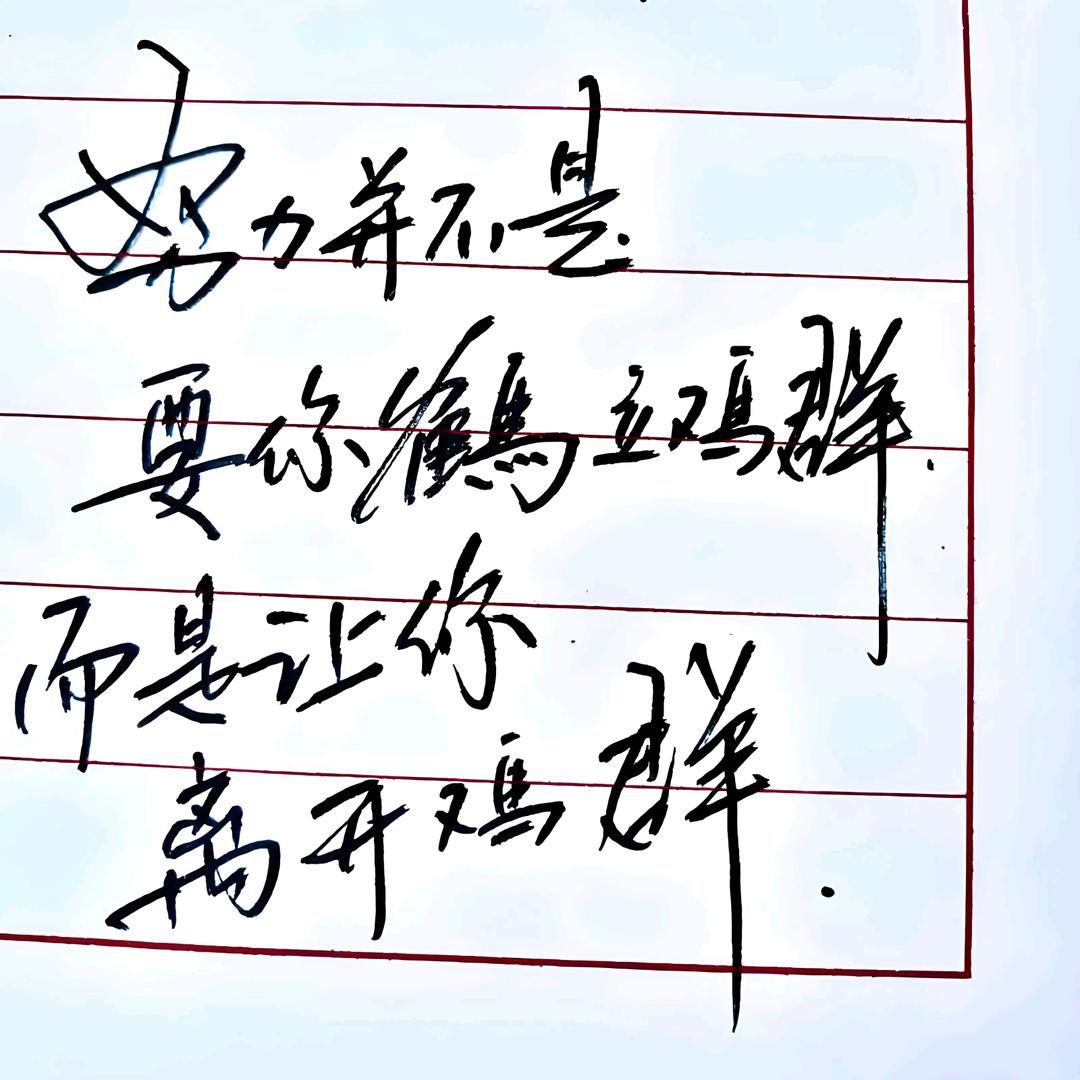 努力并不是
要你鶴立鸡群.
而是让你
离开鸡群.